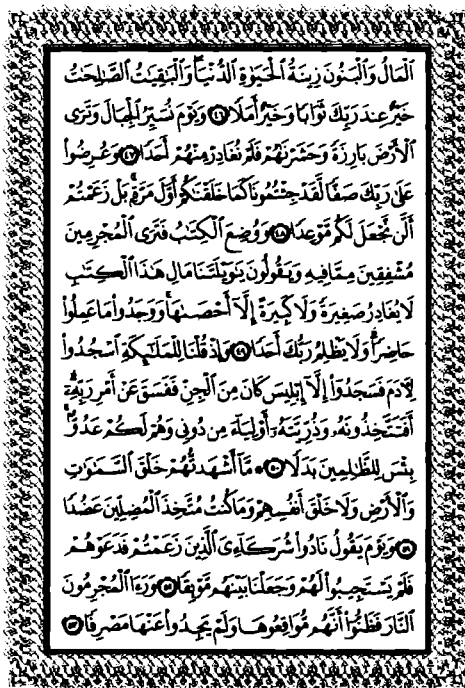 ٱلۡمَالُ وَٱلۡبَنُونَ زِينَةُ ٱلۡحَيَوٰةِ ٱلدُّنۡيَاۖ وَٱلۡبَٰقِيَٰتُ ٱلصَّٰلِحَٰتُ
خَيۡرٌ عِندَ رَبِّكَ ثَوَابٗا وَخَيۡرٌ أَمَلٗا ٤٦ وَيَوۡمَ نُسَيِّرُ ٱلۡجِبَالَ وَتَرَى
ٱلۡأَرۡضَ بَارِزَةٗ وَحَشَرۡنَٰهُمۡ فَلَمۡ نُغَادِرۡ مِنۡهُمۡ أَحَدٗا ٤٧ وَعُرِضُواْ
عَلَىٰ رَبِّكَ صَفّٗا لَّقَدۡ جِئۡتُمُونَا كَمَا خَلَقۡنَٰكُمۡ أَوَّلَ مَرَّةِۭۚ بَلۡ زَعَمۡتُمۡ
أَلَّن نَّجۡعَلَ لَكُم مَّوۡعِدٗا ٤٨ وَوُضِعَ ٱلۡكِتَٰبُ فَتَرَى ٱلۡمُجۡرِمِينَ
مُشۡفِقِينَ مِمَّا فِيهِ وَيَقُولُونَ يَٰوَيۡلَتَنَا مَالِ هَٰذَا ٱلۡكِتَٰبِ
لَا يُغَادِرُ صَغِيرَةٗ وَلَا كَبِيرَةً إِلَّآ أَحۡصَىٰهَاۚ وَوَجَدُواْ مَا عَمِلُواْ
حَاضِرٗاۗ وَلَا يَظۡلِمُ رَبُّكَ أَحَدٗا ٤٩ وَإِذۡ قُلۡنَا لِلۡمَلَٰٓئِكَةِ ٱسۡجُدُواْ
لِأٓدَمَ فَسَجَدُوٓاْ إِلَّآ إِبۡلِيسَ كَانَ مِنَ ٱلۡجِنِّ فَفَسَقَ عَنۡ أَمۡرِ رَبِّهِۦٓۗ
أَفَتَتَّخِذُونَهُۥ وَذُرِّيَّتَهُۥٓ أَوۡلِيَآءَ مِن دُونِي وَهُمۡ لَكُمۡ عَدُوُّۢۚ
بِئۡسَ لِلظَّٰلِمِينَ بَدَلٗا ٥٠ ۞ مَّآ أَشۡهَدتُّهُمۡ خَلۡقَ ٱلسَّمَٰوَٰتِ
وَٱلۡأَرۡضِ وَلَا خَلۡقَ أَنفُسِهِمۡ وَمَا كُنتُ مُتَّخِذَ ٱلۡمُضِلِّينَ عَضُدٗا
٥١ وَيَوۡمَ يَقُولُ نَادُواْ شُرَكَآءِيَ ٱلَّذِينَ زَعَمۡتُمۡ فَدَعَوۡهُمۡ
فَلَمۡ يَسۡتَجِيبُواْ لَهُمۡ وَجَعَلۡنَا بَيۡنَهُم مَّوۡبِقٗا ٥٢ وَرَءَا ٱلۡمُجۡرِمُونَ
ٱلنَّارَ فَظَنُّوٓاْ أَنَّهُم مُّوَاقِعُوهَا وَلَمۡ يَجِدُواْ عَنۡهَا مَصۡرِفٗا ٥٣